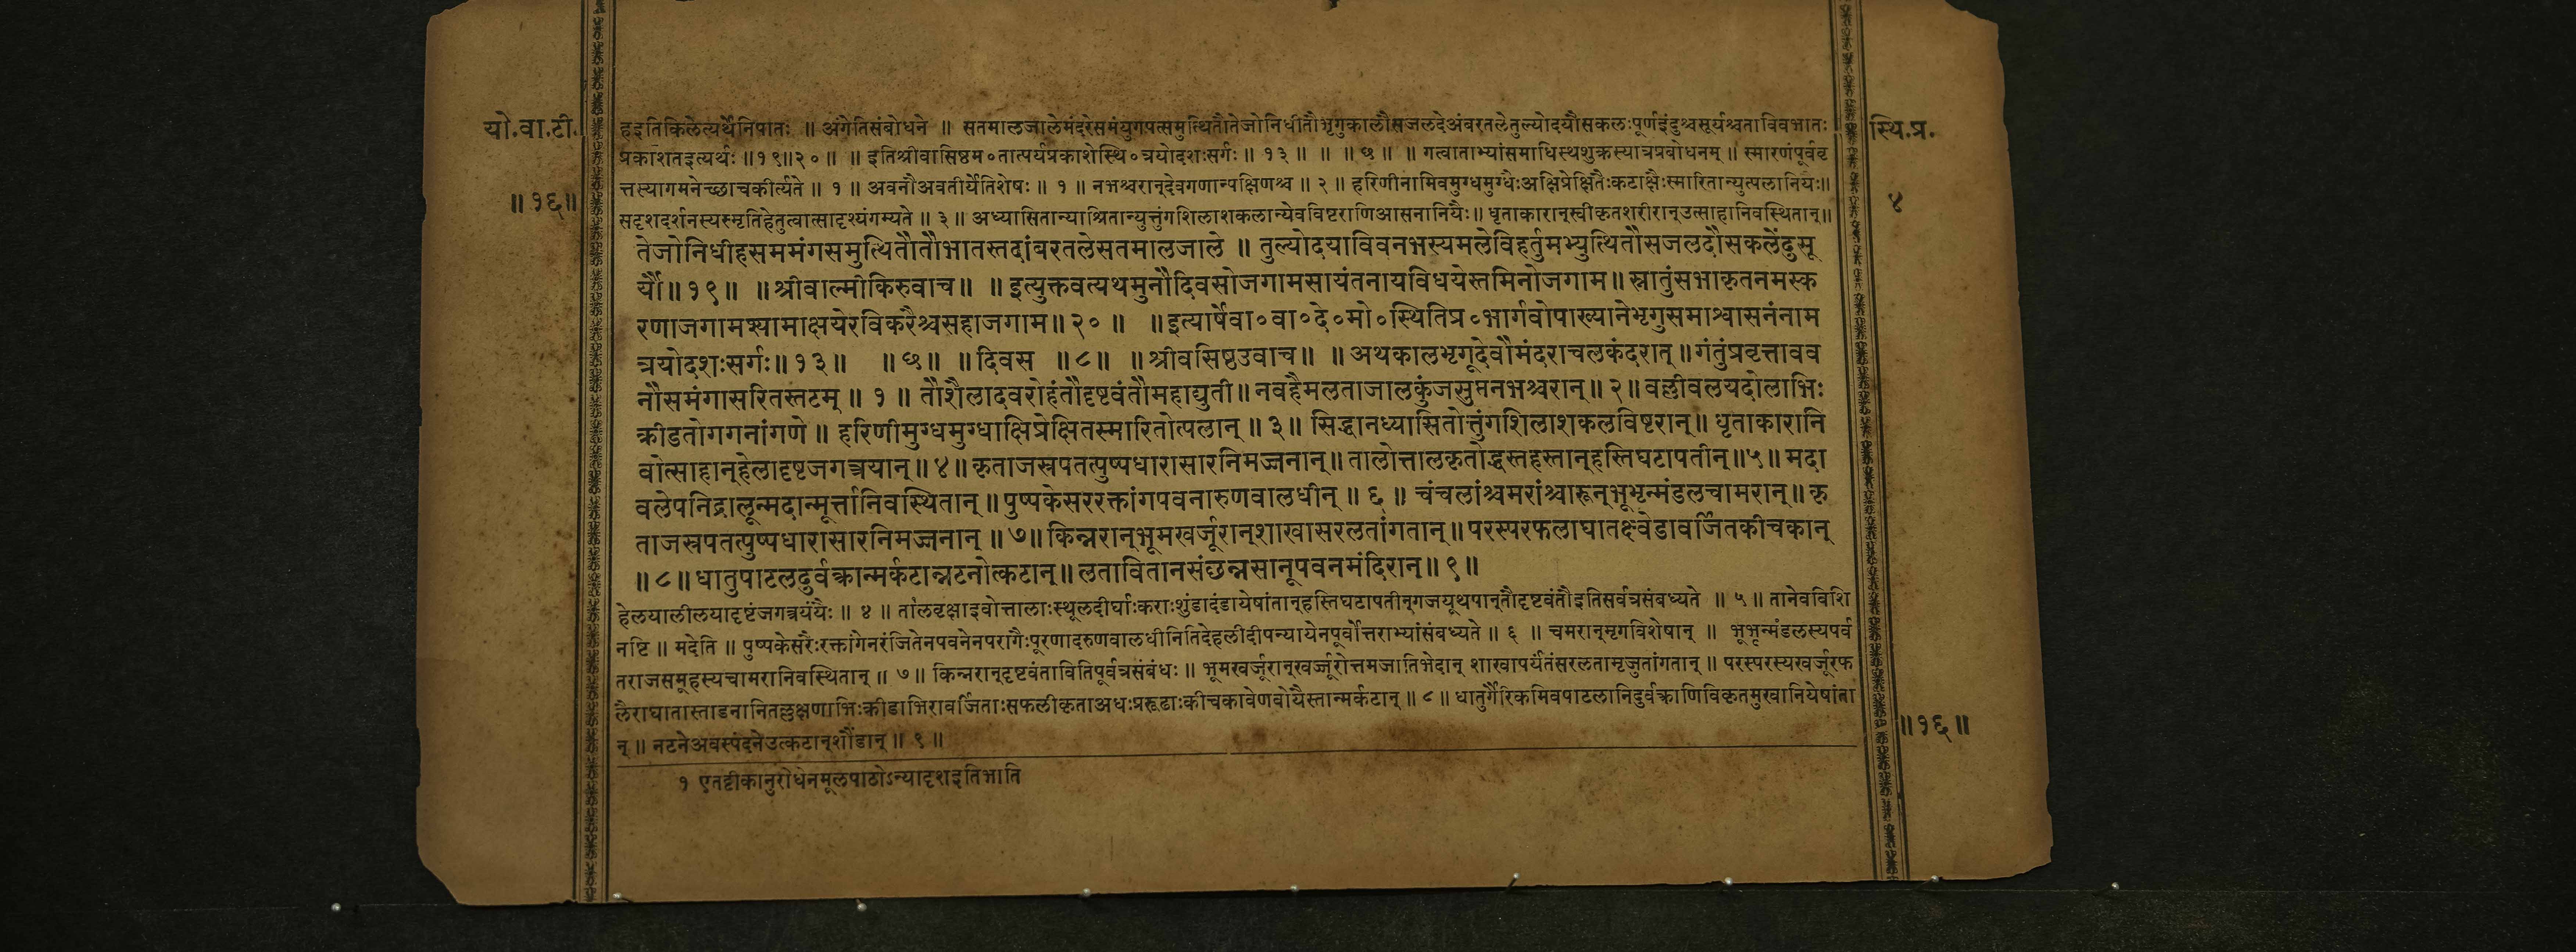 यो.वा.टी.
॥१६॥
हइतिकिलेत्यर्थेनिपातः ॥ अंगेतिसंबोधने ॥ सतमालजालेमंदरेसमंयुगपत्समुत्थितौतेजोनिधीतौभृगुकालौसजलदेअंबरतलेतुल्योदयौसकलःपूर्णइंदुश्चसूर्यश्चताविवभातः
प्रकाशतइत्यर्थः ॥१९॥२०॥ ॥ इतिश्रीवासिष्ठम०तात्पर्यप्रकाशेस्थि०त्रयोदशःसर्गः ॥ १३ ॥ ॥ ॥ छ ॥ ॥ गत्वाताभ्यांसमाधिस्थशुक्रस्यात्रप्रबोधनम् ॥ स्मारणंपूर्ववृ
त्तस्यागमनेच्छाचकीर्त्यते ॥ १ ॥ अवनौअवतीर्येतिशेषः ॥ १ ॥ नभश्चरान्देवगणान्पक्षिणश्च ॥ २ ॥ हरिणीनामिवमुग्धमुग्धैःअक्षिप्रेक्षितैःकटाक्षैःस्मारितान्युत्पलानियैः॥
सदृशदर्शनस्यस्मृतिहेतुत्वात्सादृश्यंगम्यते ॥ ३ ॥ अध्यासितान्याश्रितान्युत्तुंगशिलाशकलान्येवविष्टराणिआसनानियैः॥ धृताकारान्स्वीकृतशरीरान्उत्साहानिवस्थितान्॥
तेजोनिधीहसममंगसमुत्थितौतौभातस्तदांबरतलेसतमालजाले ॥ तुल्योदयाविवनभस्यमलेविहर्तुमभ्युत्थितौसजलदौसकलेंदुसू
र्यौ॥१९॥ ॥श्रीवाल्मीकिरुवाच॥ ॥इत्युक्तवत्यथमुनौदिवसोजगामसायंतनायविधयेस्तमिनोजगाम॥ स्नातुंसभाकृतनमस्क
रणाजगामश्यामाक्षयेरविकरैश्चसहाजगाम॥२०॥ ॥इत्यार्षेवा०वा०दे०मो०स्थितिप्र०भार्गवोपाख्यानेभृगुसमाश्वासनंनाम
त्रयोदशःसर्गः॥१३॥ ॥छ॥ ॥दिवस ॥८॥ ॥श्रीवसिष्ठउवाच॥ ॥अथकालभृगूदेवौमंदराचलकंदरात्॥गंतुंप्रवृत्तावव
नौसमंगासरितस्तटम् ॥ १ ॥ तौशैलादवरोहंतौदृष्टवंतौमहाद्युती॥ नवहैमलताजालकुंजसुप्तनभश्चरान्॥२॥ वल्लीवलयदोलाभिः
क्रीडतोगगनांगणे ॥ हरिणीमुग्धमुग्धाक्षिप्रेक्षितस्मारितोत्पलान् ॥ ३॥ सिद्धानध्यासितोत्तुंगशिलाशकलविष्टरान्॥ धृताकारानि
वोत्साहान्हेलादृष्टजगत्त्रयान्॥४॥ कृताजस्रपतत्पुष्पधारासारनिमज्जनान्॥ तालोत्तालकृतोद्धस्तहस्तान्हस्तिघटापतीन्॥५॥ मदा
वलेपनिद्रालून्मदान्मूर्त्तानिवस्थितान्॥ पुष्पकेसररक्तांगपवनारुणवालधीन् ॥ ६ ॥ चंचलांश्चमरांश्चारून्भूभृन्मंडलचामरान्॥ कृ
ताजस्रपतत्पुष्पधारासारनिमज्जनान् ॥७॥ किन्नरान्भूमखर्जूरान्शाखासरलतांगतान्॥ परस्परफलाघातक्ष्वेडावर्जितकीचकान्
॥८॥ धातुपाटलदुर्वक्त्रान्मर्कटान्नटनोत्कटान्॥ लतावितानसंछन्नसानूपवनमंदिरान्॥९॥
हेलयालीलयादृष्टंजगत्त्रयंयैः ॥ ४ ॥ तालवृक्षाइवोत्तालाःस्थूलदीर्घाःकराःशुंडादंडायेषांतान्हस्तिघटापतीन्गजयूथपान्तौदृष्टवंतौइतिसर्वत्रसंबध्यते ॥ ५ ॥ तानेवविशि
नष्टि ॥ मदेति ॥ पुष्पकेसरैःरक्तांगेनरंजितेनपवनेनपरागैःपूरणादरुणवालधीनितिदेहलीदीपन्यायेनपूर्वोत्तराभ्यांसंबध्यते ॥ ६ ॥ चमरान्मृगविशेषान् ॥ भूभृन्मंडलस्यपर्व
तराजसमूहस्यचामरानिवस्थितान् ॥ ७ ॥ किन्नरान्दृष्टवंतावितिपूर्वत्रसंबंधः ॥ भूमखर्जूरान्खर्ज्जूरोत्तमजातिभेदान् शाखापर्यंतंसरलतामृजुतांगतान् ॥ परस्परस्यखर्जूरफ
लैराघातास्ताडनानितल्लक्षणाभिःक्रीडाभिरावर्जिताःसफलीकृताअधःप्ररूढाःकीचकावेणवोयैस्तान्मर्कटान् ॥ ८ ॥ धातुर्गैरिकमिवपाटलानिदुर्वक्त्राणिविकृतमुखानियेषांता
न् ॥ नटनेअवस्पंदनेउत्कटान्शौंडान् ॥ ९ ॥
१ एतट्टीकानुरोधेनमूलपाठोऽन्यादृशइतिभाति
स्थि.प्र.
४
॥१६॥